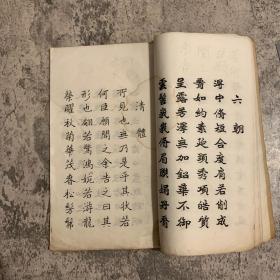 六朝
得中脩短合度肩若削成
如約素延頸秀項皓質
呈露芳澤無加鉛華不御
雲髻峩峩脩眉聯娟丹脣
清體
所見也無乃是乎其狀若
何臣願聞之余告之曰其
形也翩若驚鴻婉若游龍
榮曜秋菊華茂春松髣髴